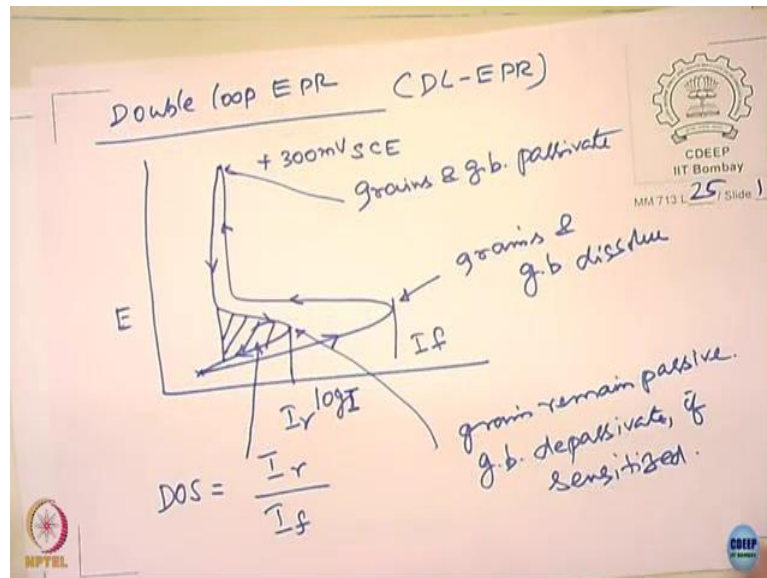 Double loop EPR (DL-EPR)
CDEEP
IIT Bombay
MM 713 L 25 / Slide 1
+ 300mV SCE
grains & g.b. passivate
grains &
g.b dissolve
E
If
Ir
log I
grain remain passive.
g.b. depassivate, if
sensitized.
DOS = Ir
If
NPTEL
CDEEP
IIT BOMBAY